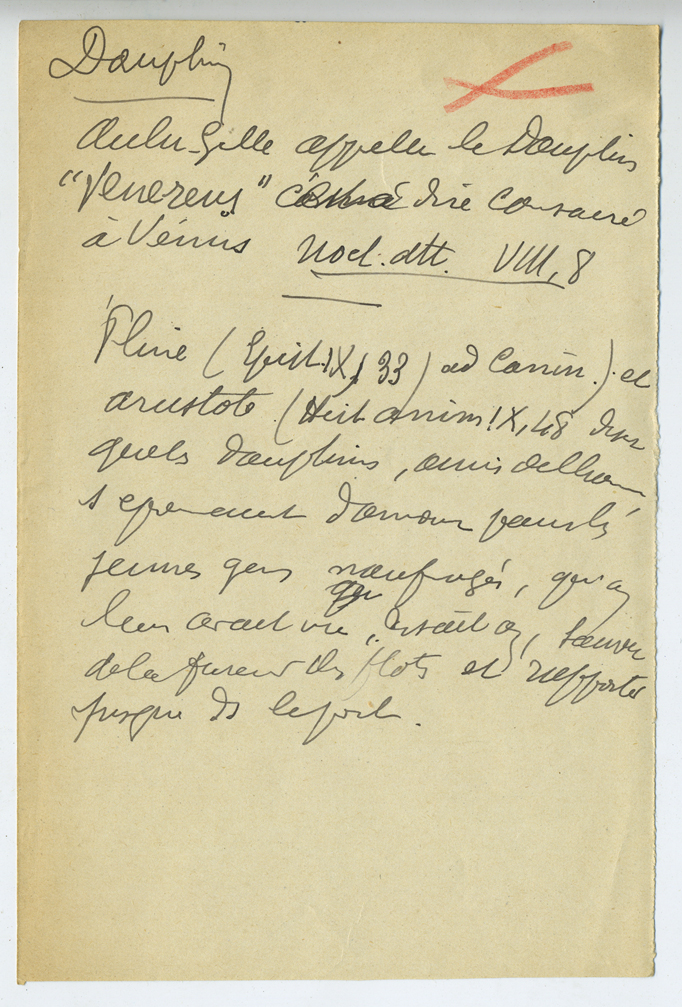 Dauphin
Aulu-Gelle appelle le Dauphin
"Venereus" c'est à dire consacré
à Vénus Noct. Att. VIII, 8
Pline (Epist. IX, 33) ad Canin.) et
Aristote (Hist anim IX, 48 disent
que les dauphins, amis de l'homme,
s'éprennent d'amour pour les
jeunes gens naufragés, qu'on
leur avait vu, disait on, sauver
de la fureur des flots et rapporter
jusque ds le port.